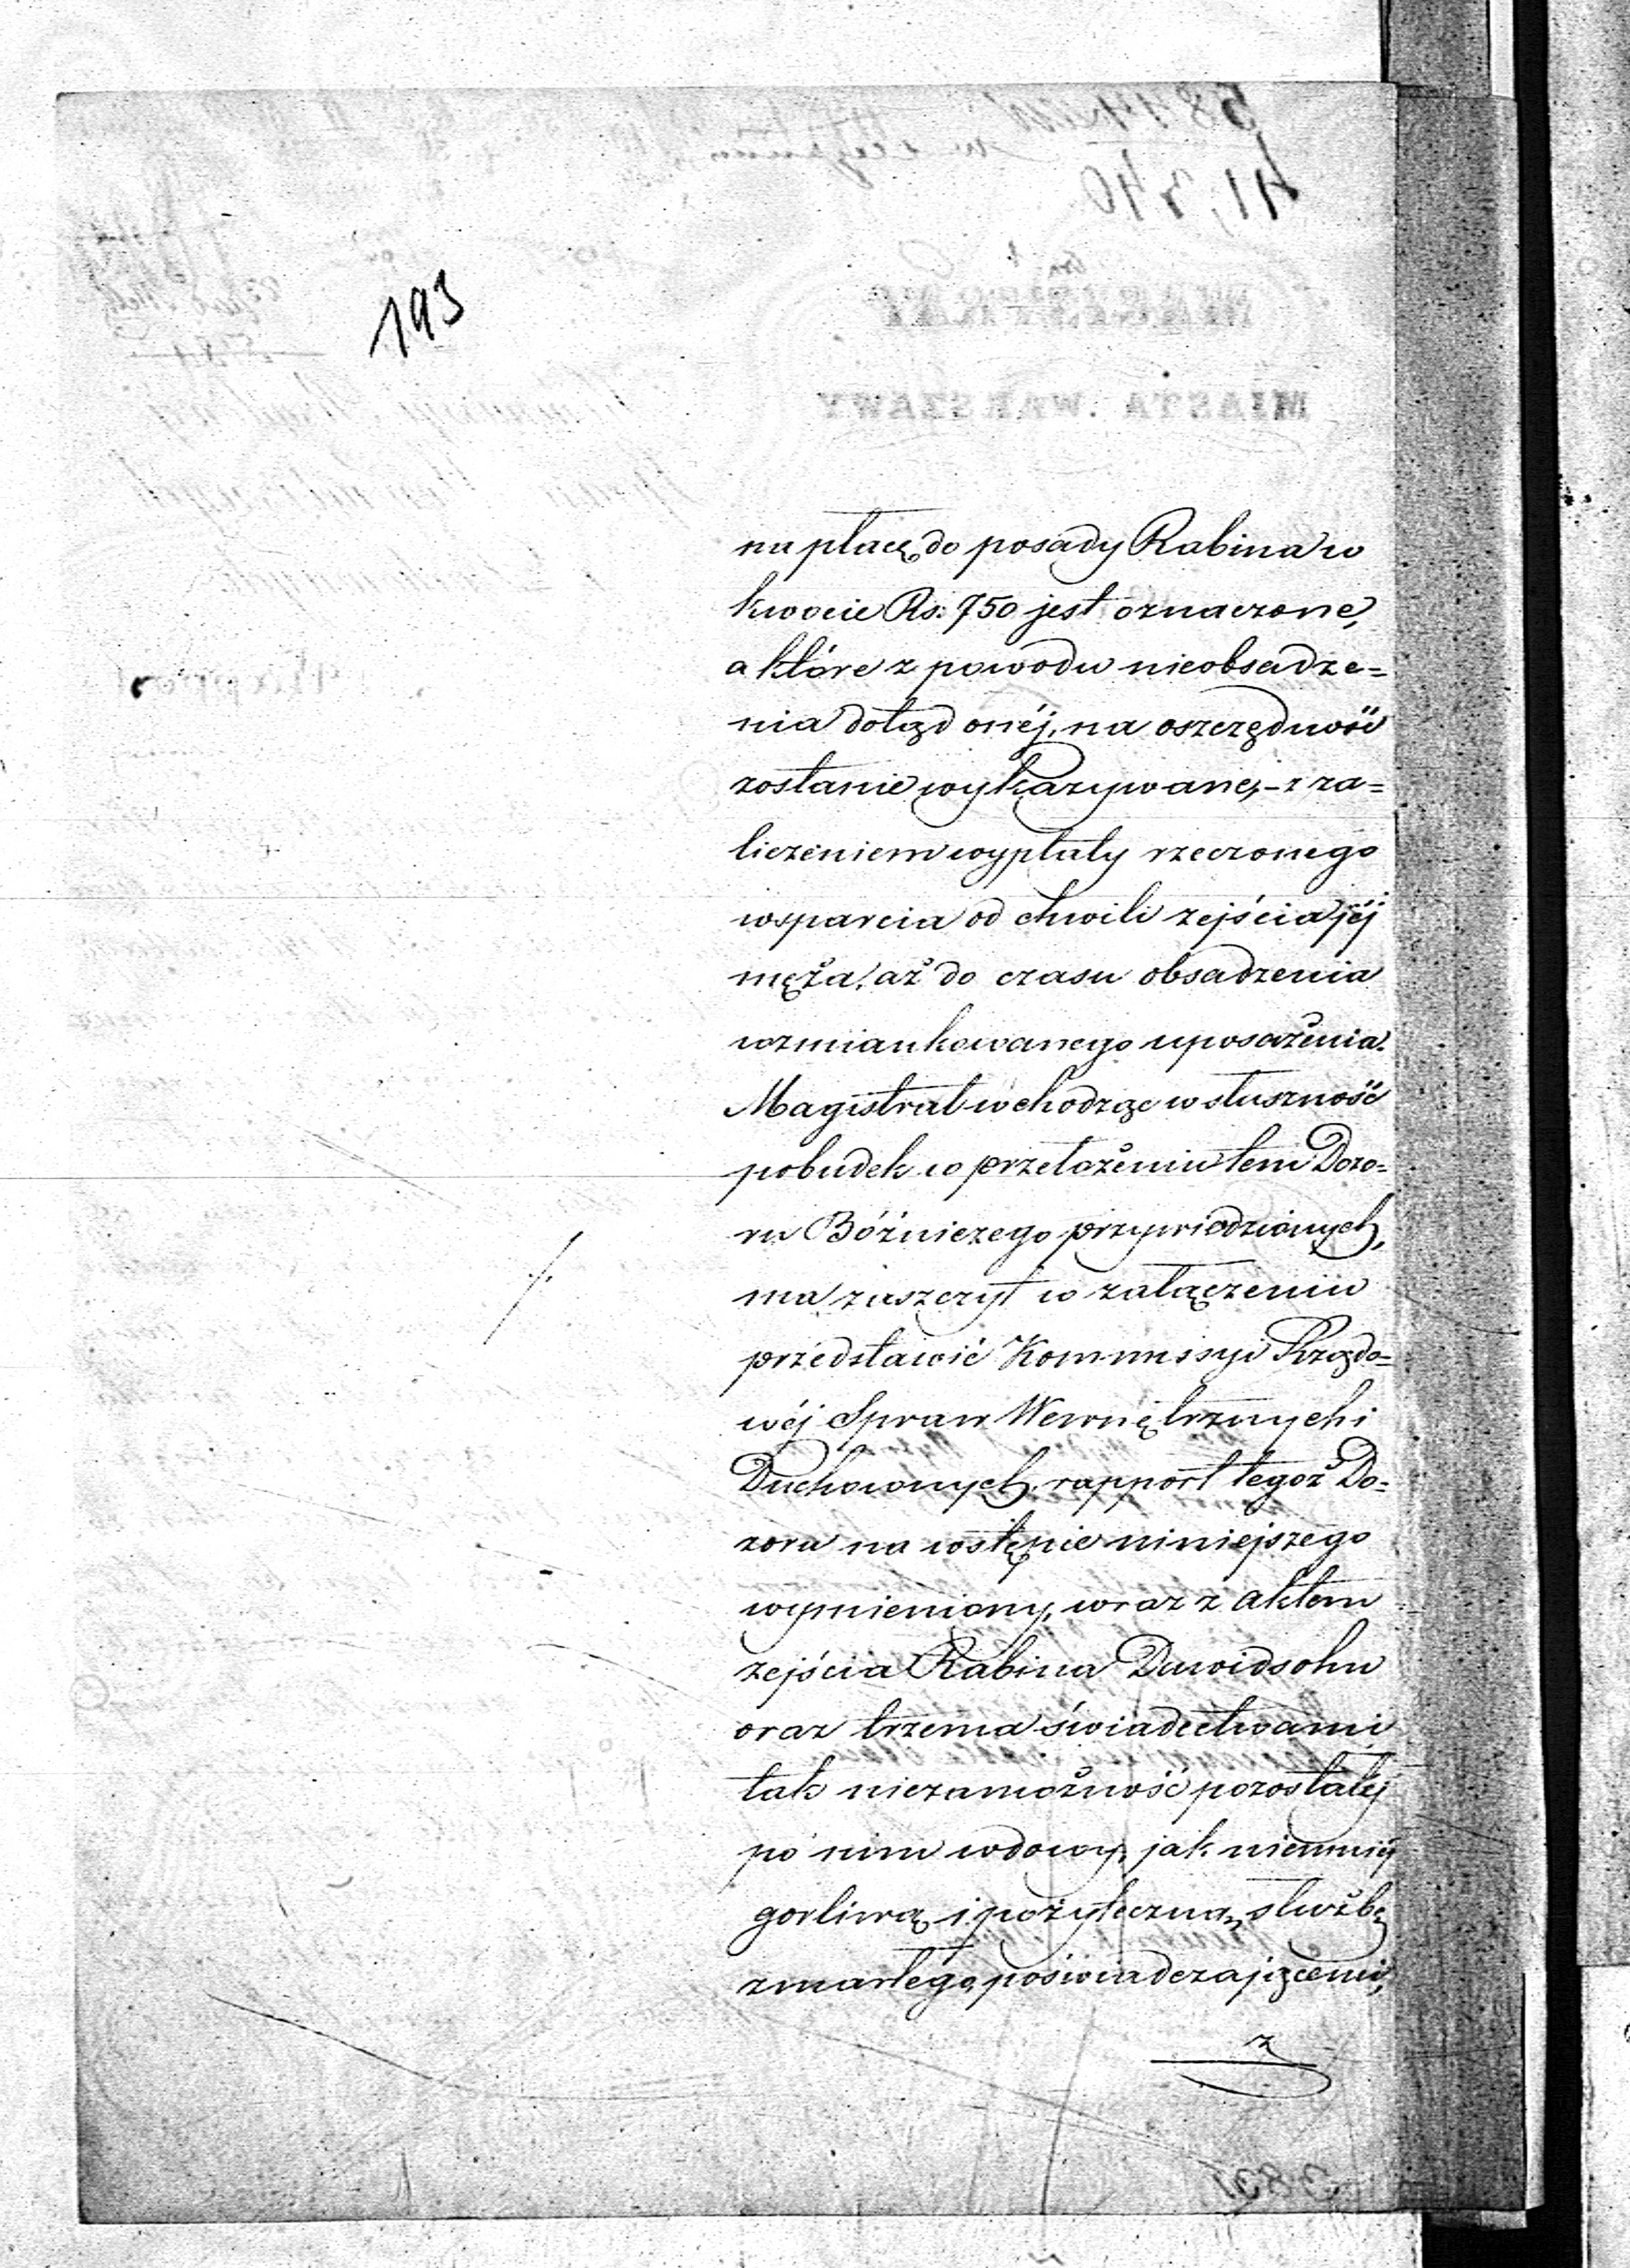 193
na płacę do posady Rabina w
kwocie Rs. 750 jest oznaczone,
a które z powodu nieobsadze=
nia dotąd onéj, na oszczędność
zostanie wykazywane, – z za=
liczeniem wypłaty rzeczonego
wsparcia od chwili zejścia jéj
męża, aż do czasu obsadzenia
wzmiankowanego uposażenia.
Magistrat wchodząc w słuszność
pobudek w przełożeniu tem Dozo=
ru Bóżniczego przywiedzionych,
ma zaszczyt w załączeniu
przedstawić Kommissyi Rządo=
wéj Spraw Wewnętrznych i
Duchownych, rapport tegoż Do=
zoru na wstępie niniejszego
wymieniony, wraz z aktem
zejścia Rabina Dawidsohn
oraz trzema świadectwami
tak niezamożność pozostałéj
po nim wdowy, jak niemniéj
gorliwą i pożyteczną służbę
zmarłego, poświadczającemi,
z
MAGISTRAT
MIASTA WARSZAWY